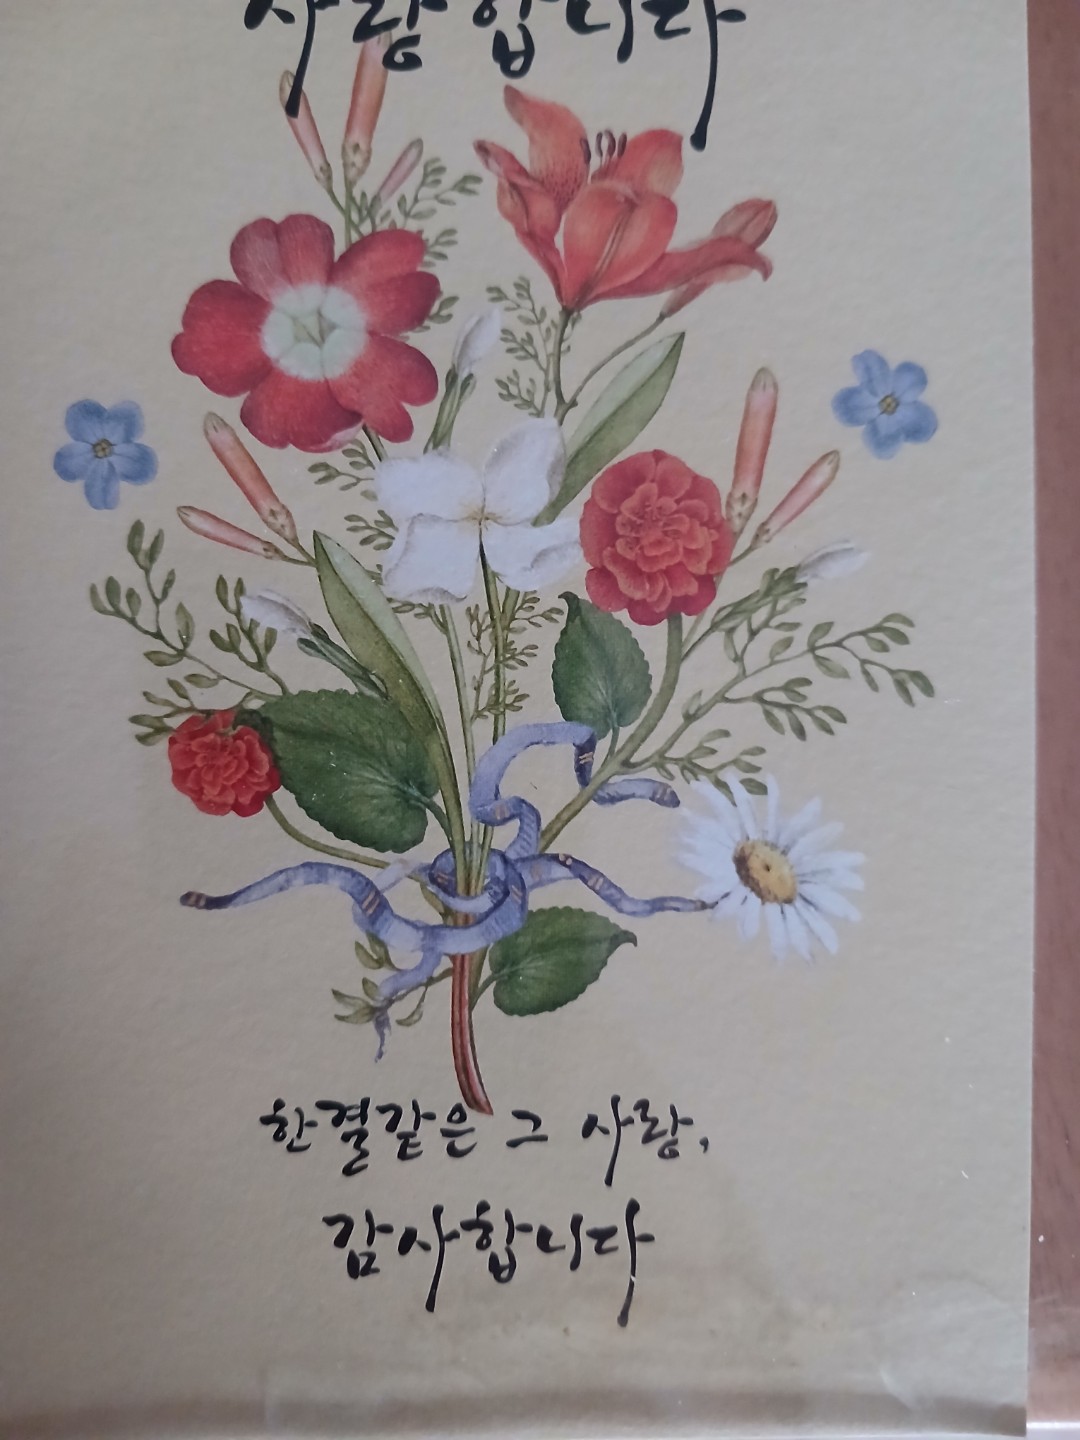 사랑합니다
한결같은 그 사랑,
감사합니다